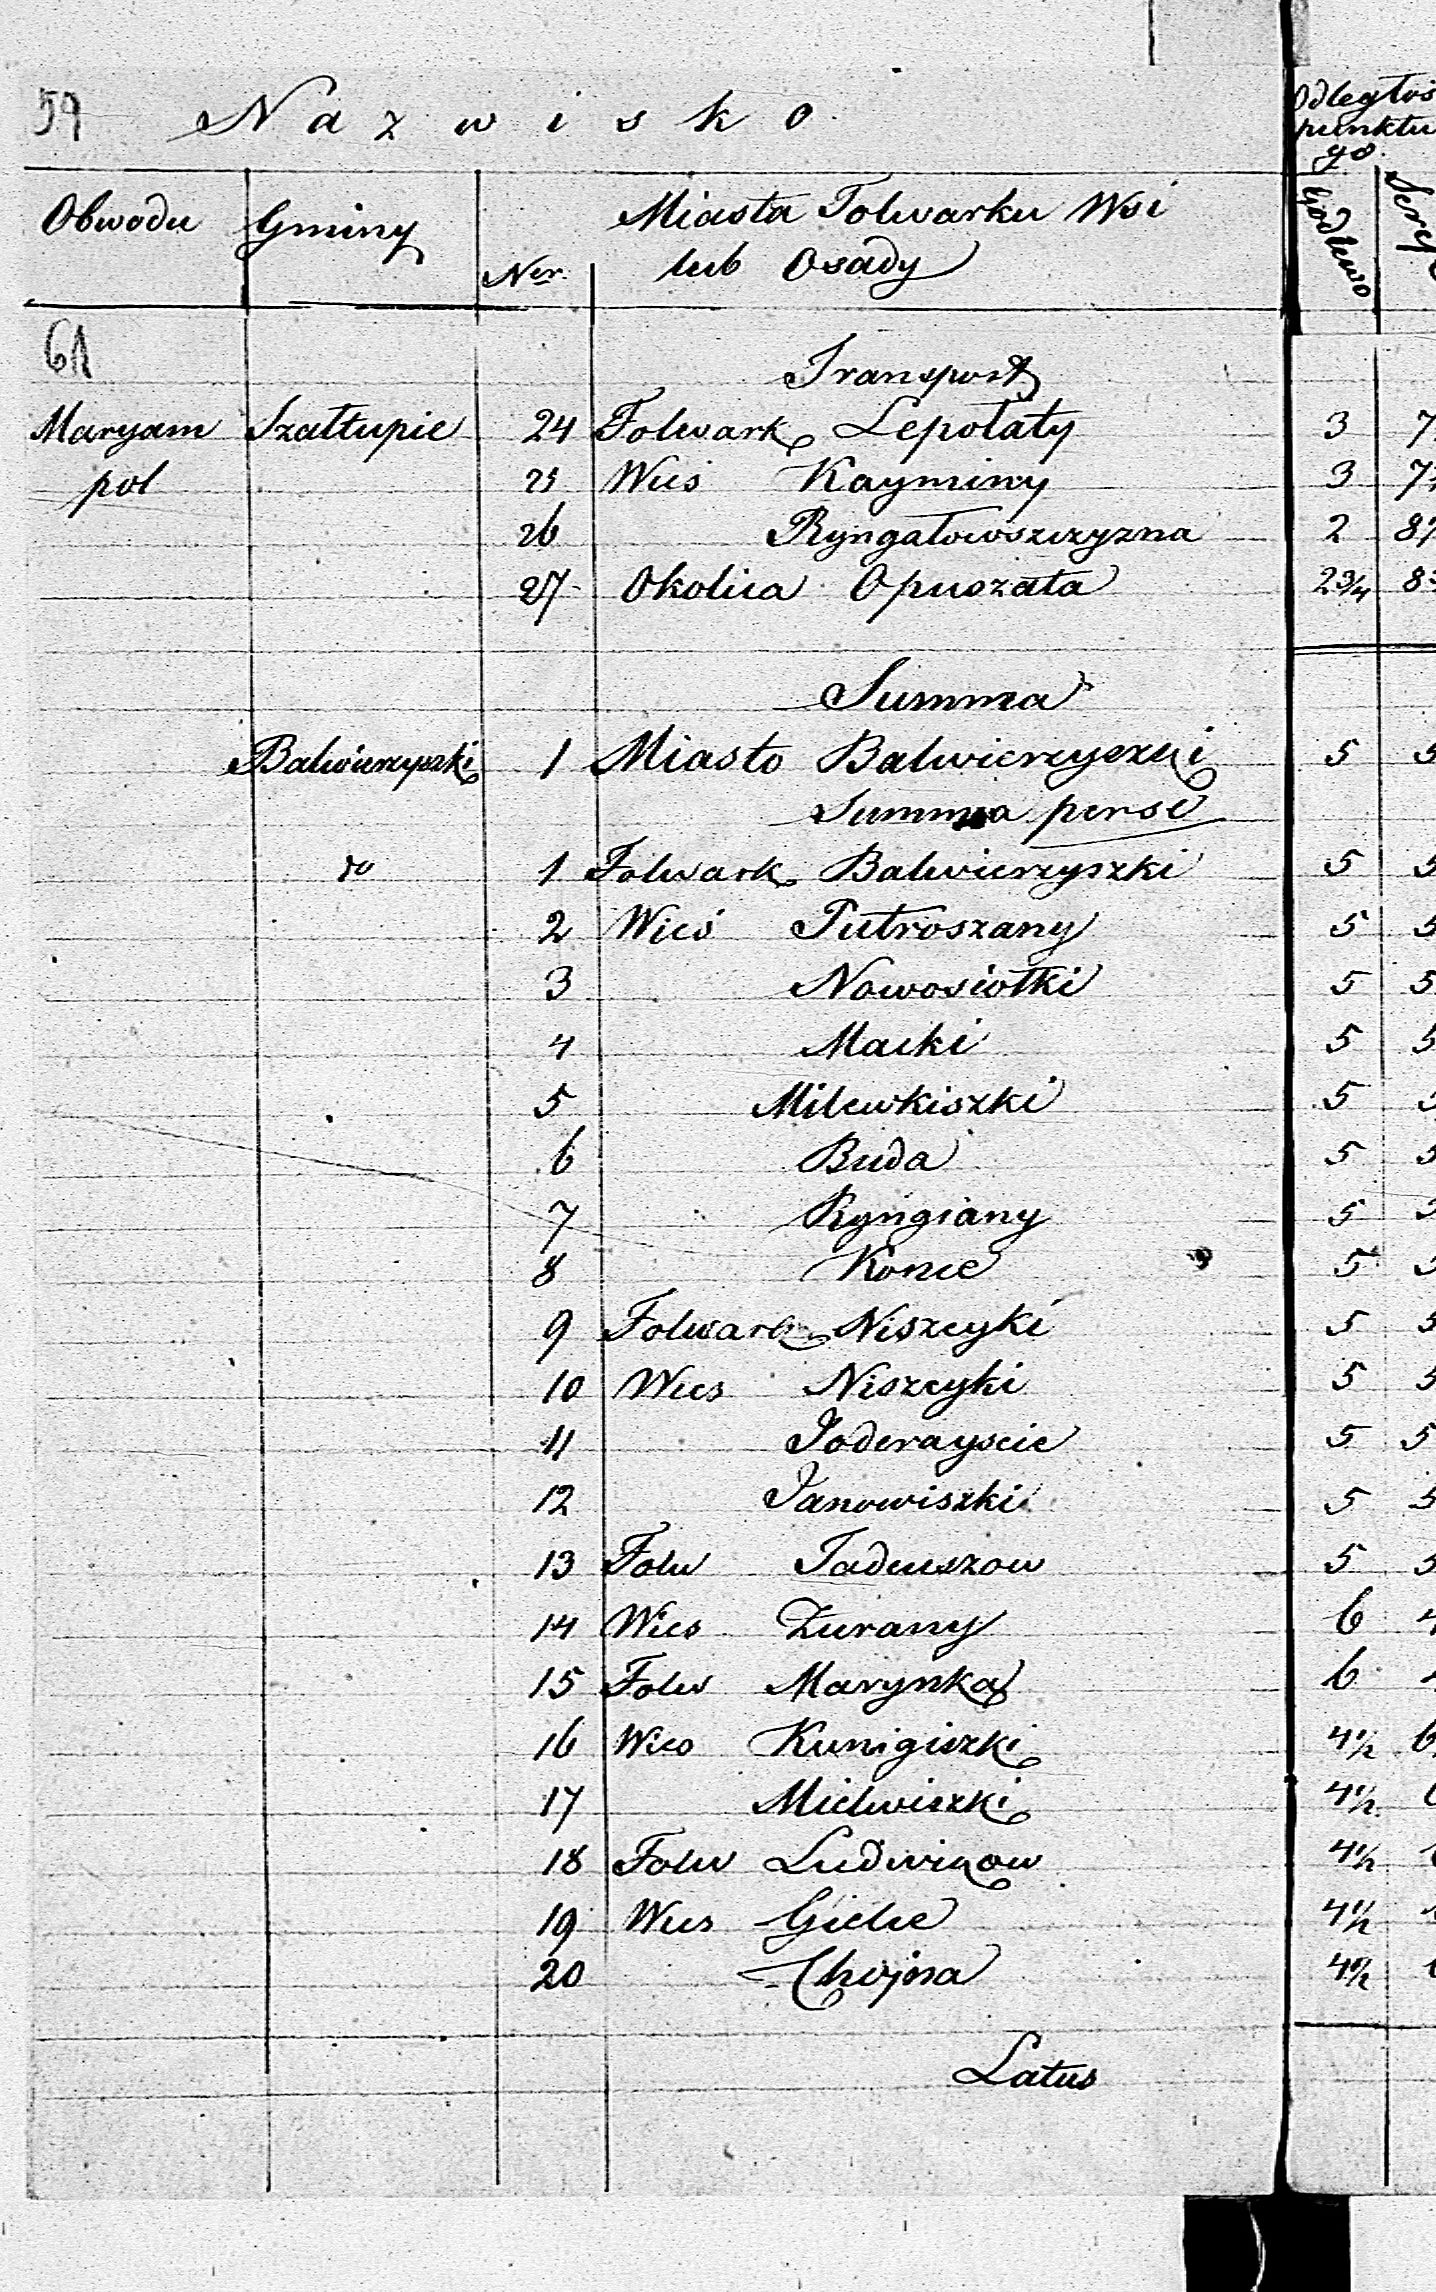 59 Nazwisko
Odległoś
punktu
go
Obwodu Gminy Ner. Miasta Folwarku Wsi
lub Osady
Godlewo
61
Transport
Maryam Szałtupie 24 Folwark Lepołaty 3 7
pol 25 Wies Kayminy 3 7
26 Ryngałowszczyzna 2 8
27 Okolica Opuszata 2 3/4 8
Summa
Balwierzyszki 1 Miasto Balwierzyszki 5 5
Summa perse
do 1 Folwark Balwierzyszki 5 5
2 Wieś Putroszany 5 5
3 Nowosiołki 5 5
4 Macki 5 5
5 Milewkiszki 5
6 Buda 5 5
7 Ryngiany 5
8 Konce 5
9 Folwark Niszcyki 5 5
10 Wies Niszcyki 5 5
11 Joderayscie 5 5
12 Janowiszki 5 5
13 Folw Tadeuszow 5 5
14 Wies Zurany 6 4
15 Folw Marynka 6
16 Wies Kunigiszki 4 1/2 6
17 Mielwiszki 4 1/2
18 Folw Ludwikow 4 1/2
19 Wies Giełie 4 1/2
20 Chojna 4 1/2
Latus